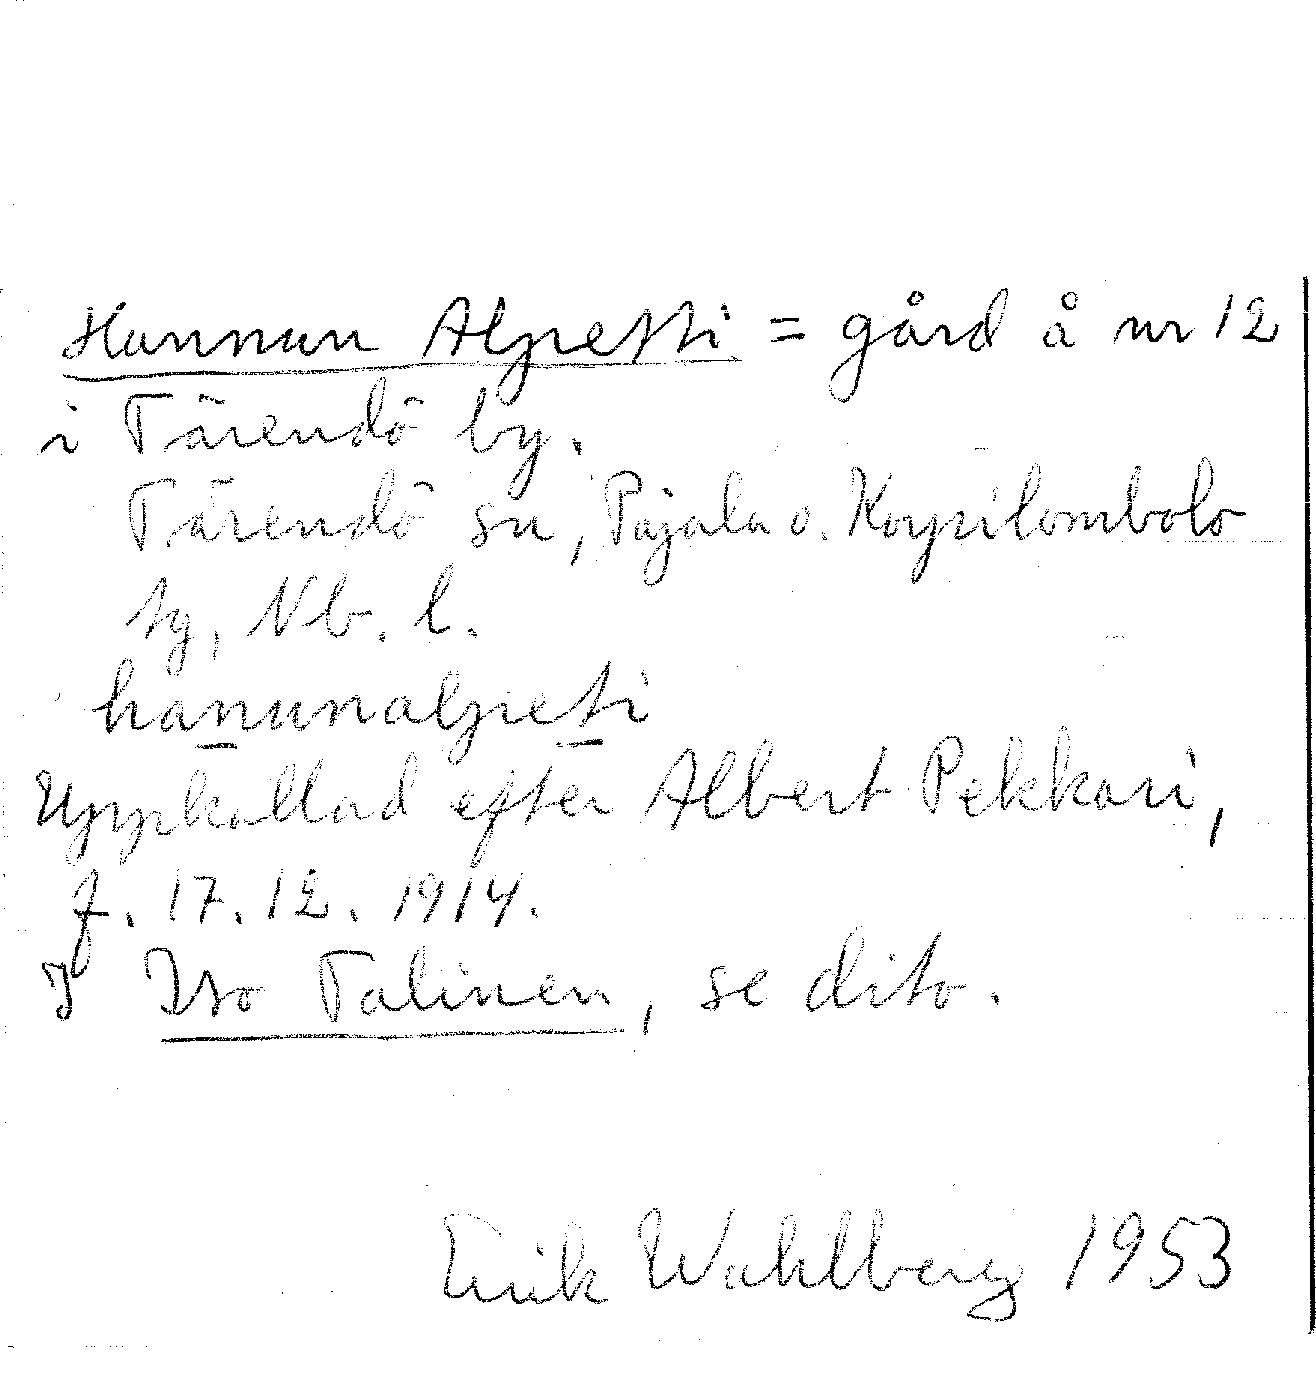 Hannun Alpetti = gård å nr 12
i Tärendö by.
Tärendö sn, Pajala o. Korpilombolo
tg, Nb. l.
hanunalpeti
Uppkallad efter Albert Pekkari,
f. 17.12.1914.
Iso Talinen, se dito.
Erik Wahlberg 1953